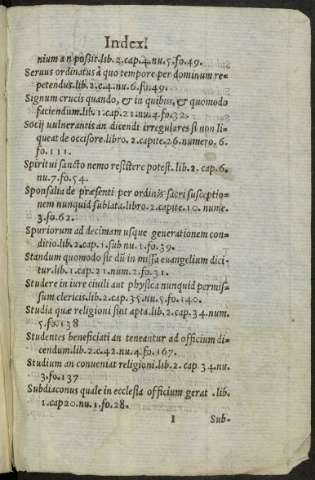 Index.
nium an possit.lib.2.cap.4.nu.5.fo.49.
Seruus ordinatus à quo tempore per dominum re-
petendus.lib.2.c.4.nu.6.fo.49.
Signum crucis quando, & in quibus, & quomodo
faciendum.lib.1.cap.21.nu.4.fo.32.
Socij uulnerantis an dicendi irregulares si non li-
queat de occisore.libro.2.capite.26.numero.6.
fo.111.
Spiritui sancto nemo resistere potest.lib.2.cap.6.
nu.7.fo.54.
Sponsalia de præsenti per ordinis sacri susceptio-
nem nunquid sublata.libro.2.capite.10.nume.
3.fo.62.
Spuriorum ad decimam usque generationem con-
ditio.lib.2.cap.1.sub nu.1.fo.39.
Standum quomodo sit dū in missa euangelium dici-
tur.lib.1.cap.21.num.2.fo.31.
Studere in iure ciuili aut physica nunquid permis-
sum clericis.lib.2.cap.35.nu.5.fo.140.
Studia quæ religioni sint apta.lib.2.cap.34.num.
5.fo.138
Studentes beneficiati an teneantur ad officium di-
cendum.lib.2.c.42.nu.4.fo.167.
Studium an conueniat religioni.lib.2.cap.34.nu.
3.fo.137
Subdiaconus quale in ecclesia officium gerat.lib.
1.cap20.nu.1.fo.28.
I Sub-